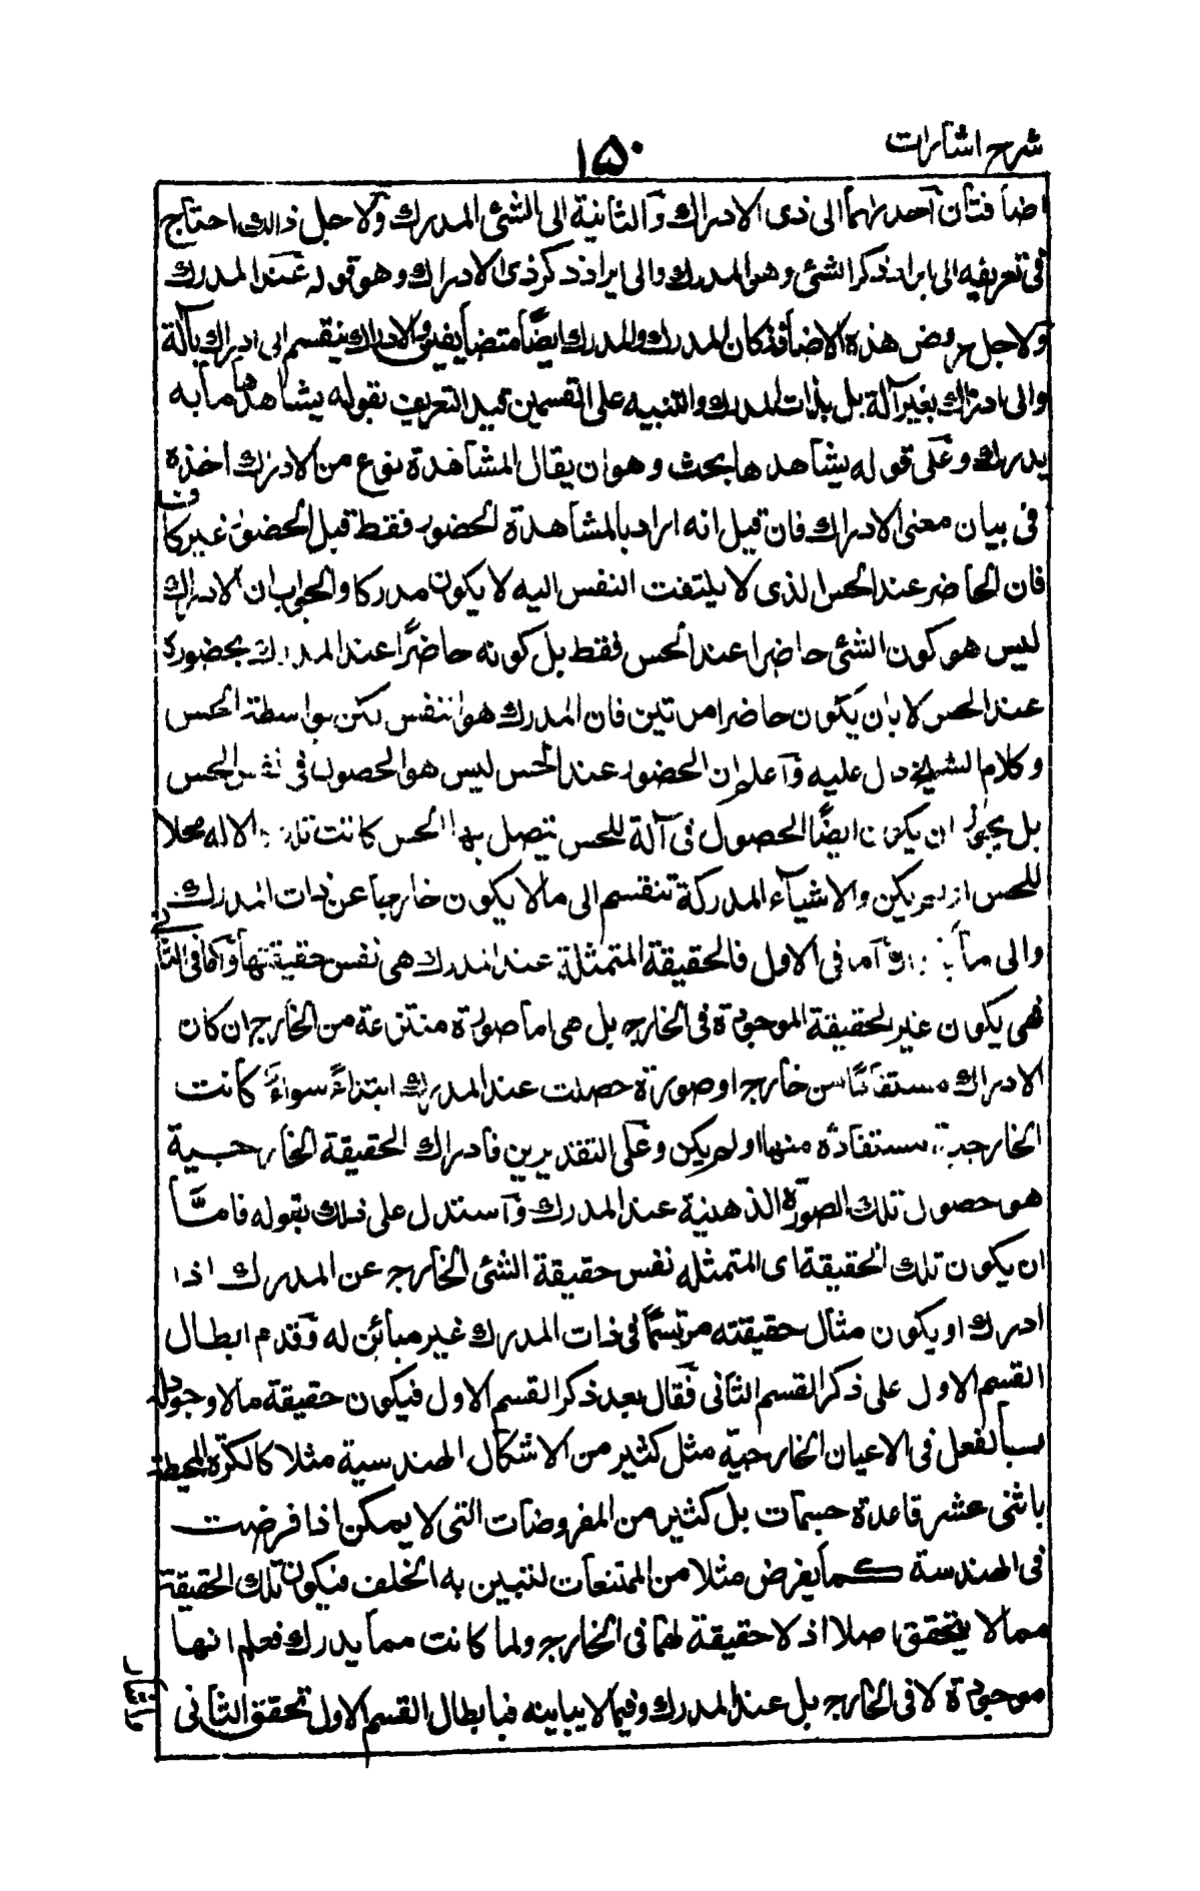 شرح اشارات
۱۵۰
اضافتان احدىهما الى ذى الادراك والثانية الى الشئ المدرك ولاجل ذالك احتاج
فى تعريفه الى ايراد ذكر الشئ وهو المدرك والى ايراد ذكر ذى الادراك وهو قوله عند المدرك
ولاجل عروض هذه الاضافة كان المدرك والمدرك ايضًا متضايفين والادراك ينقسم الى ادراك بآلة
والى ادراك بغير آلة بل بذات المدرك والتنبيه على القسمين قيد التعريف بقوله يشاهدها ما به
يدرك وعلى قوله يشاهدها بحث وهو ان يقال المشاهدة نوع من الادراك اخذه
فى بيان معنى الادراك فان قيل انه اراد بالمشاهدة الحضور فقط قيل الحضور غير كاف
فان الحاضر عند الحس الذى لا يلتفت النفس اليه لا يكون مدركا والجواب ان الادراك
ليس هو كون الشئ حاضرا عند الحس فقط بل كونه حاضرًا عند المدرك بحضوره
عند الحس لا بان يكون حاضرا مرتين فان المدرك هو النفس لكن بواسطة الحس
وكلام الشيخ دال عليه وآعلم ان الحضور عند الحس ليس هو الحصول فى نفس الحس
بل يجوز ان يكون ايضًا الحصول فى آلة للحس يتصل بها الحس كانت تلك الاله محلا
للحس او لم يكن والاشياء المدركة تنقسم الى ما لا يكون خارجا عن ذات المدرك
والى ما يكون اما فى الاول فالحقيقة المتمثلة عند المدرك هى نفس حقيقتها واما فى الثانى
فهى يكون غير الحقيقة الموجودة فى الخارج بل هى اما صورة منتزعة من الخارج ان كان
الادراك مستفادًا من خارج او صورة حصلت عند المدرك ابتداءً سواءً كانت
الخارجية مستفادة منها او لم يكن وعلى التقديرين فادراك الحقيقة الخارجية
هو حصول تلك الصورة الذهنية عند المدرك وآستدل على ذلك بقوله فامَّا
ان يكون تلك الحقيقة اى المتمثله نفس حقيقة الشئ الخارج عن المدرك اذا
ادرك او يكون مثال حقيقته مرتسمًا فى ذات المدرك غير مبائن له وقدم ابطال
القسم الاول على ذكر القسم الثانى فقال بعد ذكر القسم الاول فيكون حقيقة ما لا وجود له
بالفعل فى الاعيان الخارجيّة مثل كثير من الاشكال الهندسية مثلا كالكرة المحيطة
باثنى عشر قاعدة خمسات بل كثير من المفروضات التى لا يمكن اذا فرضت
فى الهندسة كما يفرض مثلا من الممتنعات لنبين به الخلف فيكون تلك الحقيقة
مما لا يتحقق اصلا اذ لا حقيقة لها فى الخارج ولما كانت مما يدرك فعلم انها
موجودة لا فى الخارج بل عند المدرك وفيما لا يباينه فبابطال القسم الاول تحقق الثانى